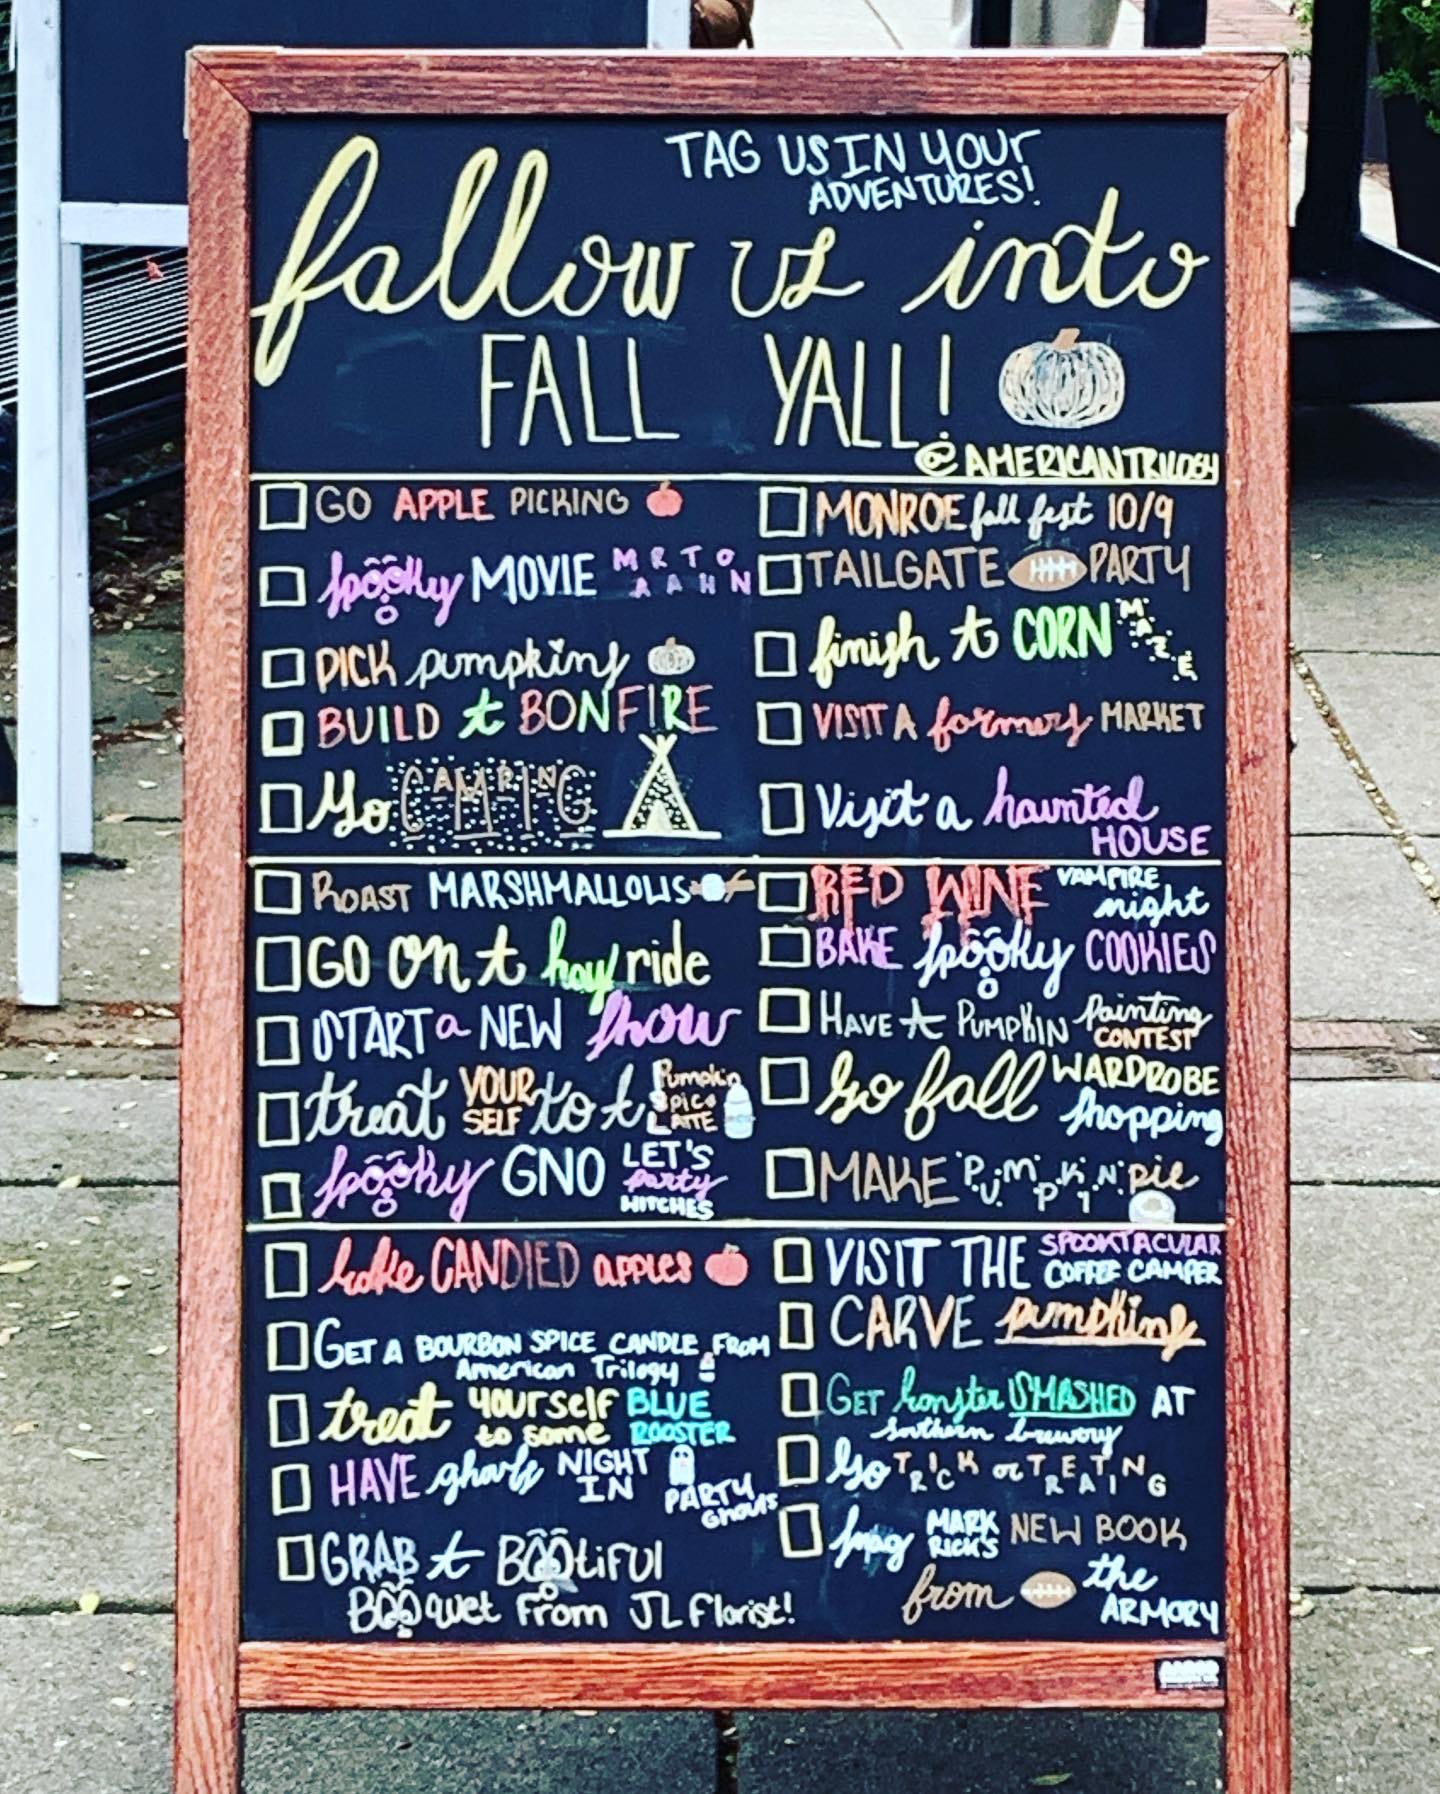 TAG US IN YOUr
ADVENTURES!
fallow us into
FALL YALL!
@AMERICANTRILOGY
GO APPLE PICKING
spooky MOVIE MARATHON
PICK pumpkins
BUILD A BONFIRE
Go CAMPING
MONROE fall fest 10/9
TAILGATE PARTY
finish A CORN MAZE
VISIT A farmers MARKET
Visit a haunted
HOUSE
ROAST MARSHMALLOWS
GO On A hay ride
START a NEW show
treat YOUR
SELF to A Pumpkin
Spice
LATTE
spooky GNO LET'S
party
WITCHES
RED WINE VAMPIRE
night
BAKE spooky COOKIES
HAVE A PUMPKIN painting
CONTEST
Go fall WARDROBE
shopping
MAKE PUMPKIN pie
bake CANDIED apples
GET A BOURBON SPICE CANDLE FROM
American Trilogy
treat yourself
to some BLUE
ROOSTER
HAVE ghouls NIGHT
IN PARTY
Ghouls
GRAB A BOOtiFUl
BOOquet From JL Florist!
VISIT THE SPOOKTACULAR
COFFEE CAMPER
CARVE pumpkins
GET monster SMASHED AT
southern brewery
Go TRICK or TREATING
snag MARK
RICK'S NEW BOOK
from the
ARMORY